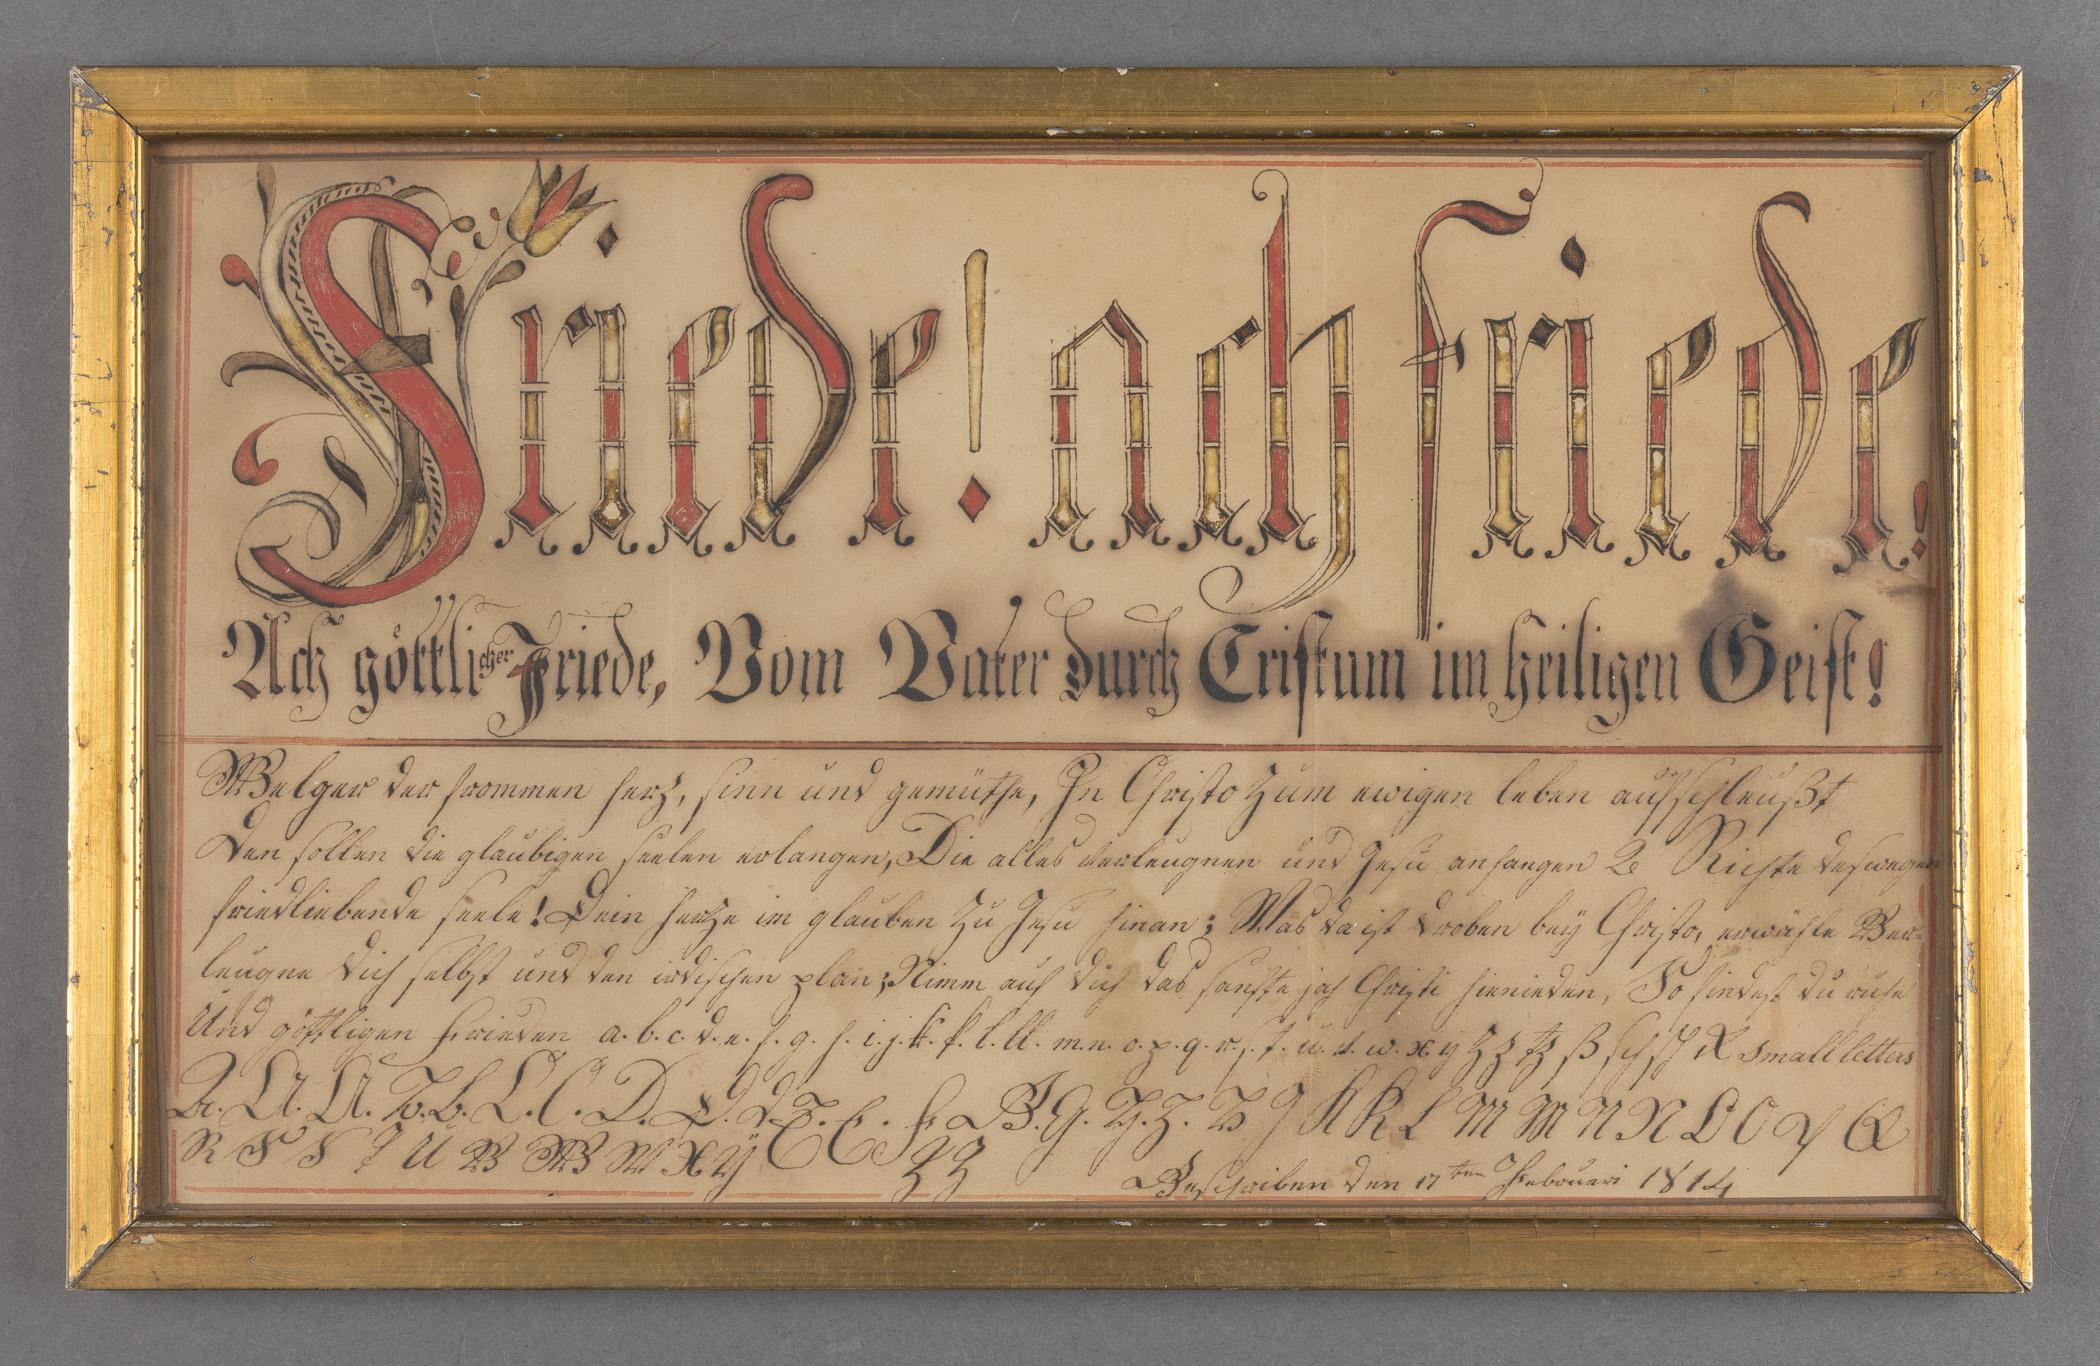 Friede! ach friede!
Ach göttlicher Friede, Vom Vater durch Cristum im heiligen Geist!
Welger der frommen herz, sinn und gemüthe, In Christo zum ewigen leben aufschleußt
Den sollen die glaubigen seelen erlangen, Die alles verleugnen und Jesu anhangen & Richte deswegen
friedliebende seele! Dein hertze im glauben zu Jesu hinan; Was da ist droben bey Christo, erwähle Ver-
leugne dich selbst und den irdischen plan; Nimm auf dich das sanfte joch Christi hienieden, So findest du ruhe
Und göttligen frieden a. b. c. d. e. f. g. h. i. j. k. k. l. ll. m. n. o. p. q. r. s. t. u. v. w. x y z z tz ß sch small letters
R S S T U V W W X Y Z Z
Beschriben den 17ten Februari 1814